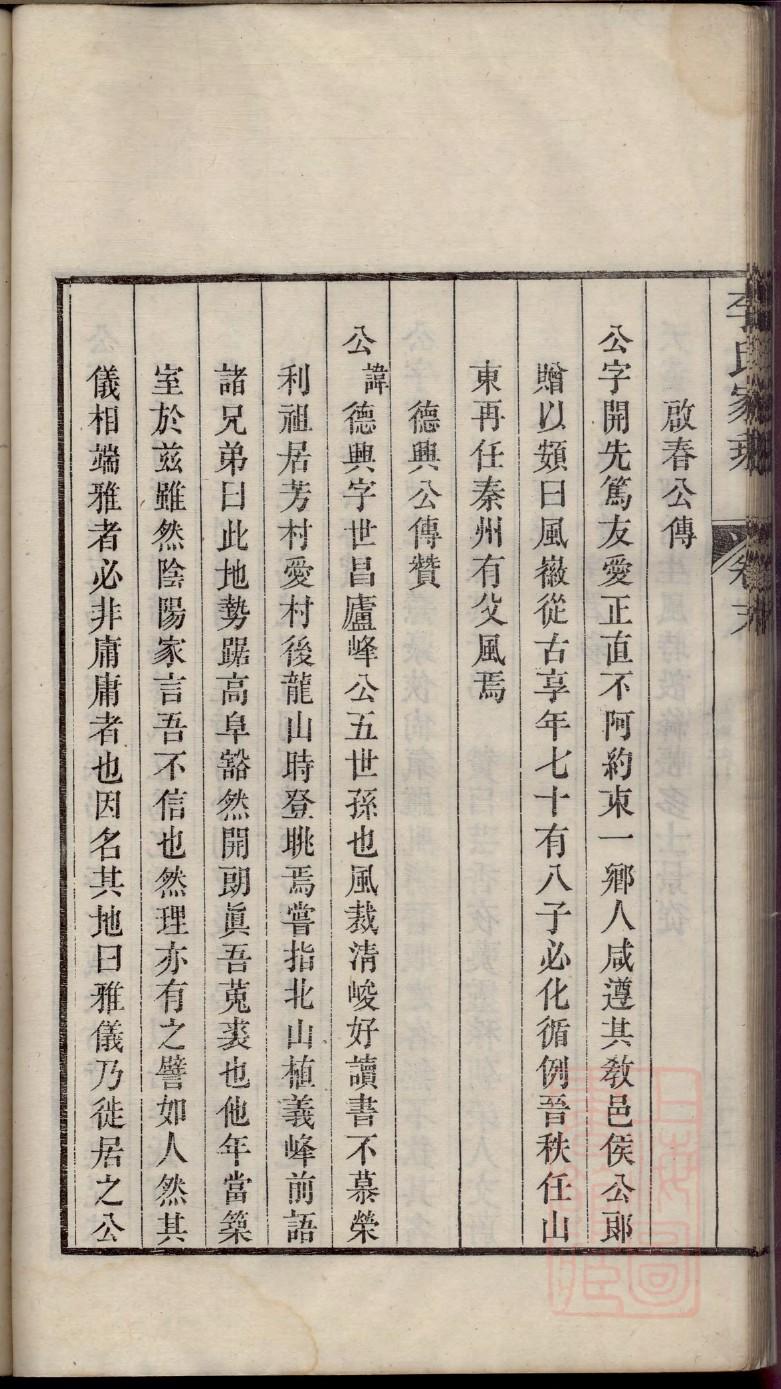 李氏家
啟春公傳
公字開先篤友愛正直不阿約束一鄉人咸遵其教邑侯公郎
贈以額曰風徽從古享年七十有八子必化循例晉秩任山
東再任秦州有父風焉
德興公傳贊
公諱德興字世昌廬峰公五世孫也風裁清峻好讀書不慕榮
利祖居芳村愛村後龍山時登眺焉嘗指北山植義峰前語
諸兄弟曰此地勢踞高阜豁然開朗眞吾菟裘也他年當築
室於茲雖然陰陽家言吾不信也然理亦有之譬如人然其
儀相端雅者必非庸庸者也因名其地曰雅儀乃徙居之公